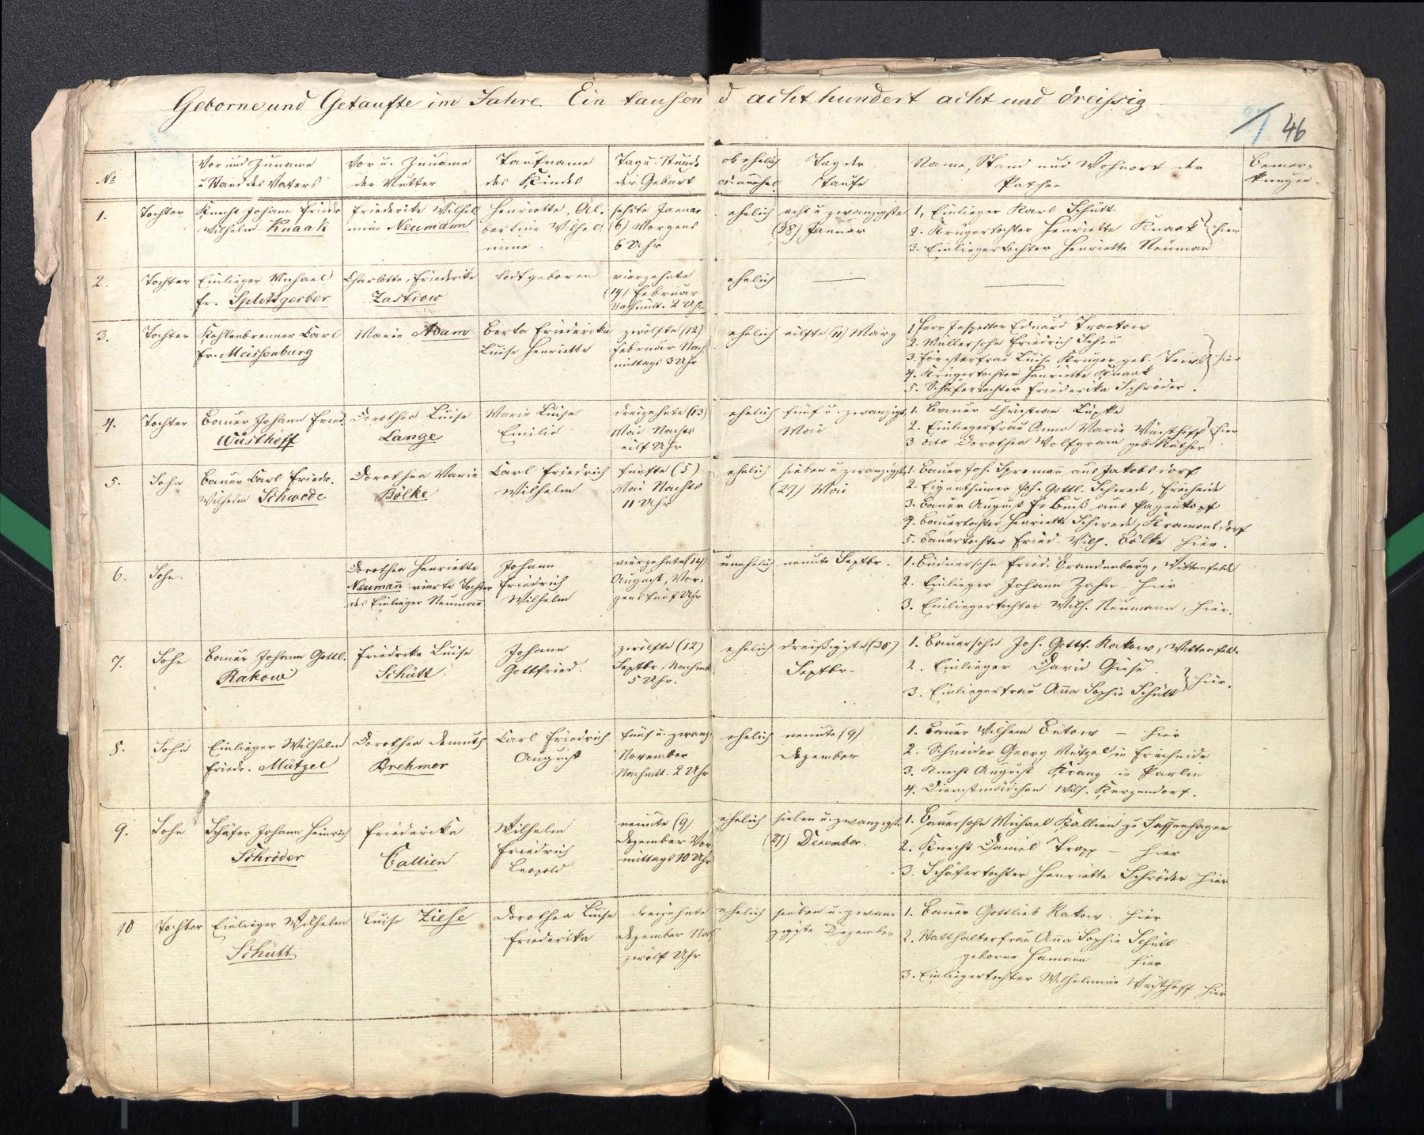 Geborne und Getaufte im Jahre Ein tausend acht hundert acht und dreissig
46
No
Vor und Zuname
u Stand des Vaters
Vor u. Zuname
der Mutter
Taufname
des Kindes
Tag u. Stunde
der Geburt
ob ehelich
od. unehel.
Tag der
Taufe
Name, Stand und Wohnort der
Pathen
Bemer-
kungen
1.
Tochter
Knecht Johann Friedr.
Wilhelm Knaak
Friederike Wilhel
mine Neumann
Henriette, Al-
bertine Wilhel
mine
sechste Januar
(6) Morgens
6 Uhr
ehelich
acht u zwanzigste
(28) Januar
1, Einlieger Karl Schütt
2. Krügertochter Henriette Knaak
3. Einliegertochter Henriette Neumann
hier
2.
Tochter
Einlieger Michael
Fr. Splittgerber
Charlotte, Friederike
Zastrow
todtgeboren
vierzehnte
(14) Februar
Nachmitt. 2 Uhr
ehelich
3.
Tochter
Kohlenbrenner Carl
Fr. Meissenburg
Marie Adam
Berta Friederika
Luise Henriette
zwölfte (12)
Februar Nach
mittags 3 Uhr
ehelich
eilfte (11) März
1 Herr Inspektor Eduard
2. Friedrich
3. Försterfrau Luise Krüger geb.
4. Krügertochter Henriette Knaak
5. Schäfertochter Friederike Schröder.
hier
4.
Tochter
Bauer Johann Fried.
Wüsthoff
Dorothea Luise
Lange
Marie Luise
Emilie
dreizehnte (13)
Mai Nachts
eilf Uhr
ehelich
fünf u. zwanzigst.
Mai
1. Bauer Christian Lüpke
2. Einliegerfrau Anna Marie Wüsthoff
3 dito Dorothea Wolfgram geb.
hier
5.
Sohn
Bauer Carl Friedr.
Wilhelm Schwede
Dorothea Marie
Bölke
Carl Friedrich
Wilhelm
fünfte (5)
Mai Nachts
11 Uhr
ehelich
sieben u zwanzigst.
(27) Mai
1. Bauer Joh. aus Jakobsdorf
2. Eigenthümer Joh. Gottl. Schwede, Freiheide
3. Bauer August Fr Buss aus
4. Bauertochter Henriette Schwede,
5. Bauertochter Fried. Wilh. Bölke hier.
6.
Sohn.
Dorothea Henriette
Neumañ vierte Tochter
des Einlieger Neumann
Johann
Friedrich
Wilhelm
vierzehnte (14)
August, Mor-
gens fünf Uhr
unehelich
neunte Septbr.
1. Fried. Brandenburg, Wittenfelde
2. Einlieger Johann Zahn hier
3. Einliegertochter Wilh. Neumann, hier.
7.
Sohn
Bauer Johann Gottl.
Rakow
Friedrike Luise
Schütt
Johann
Gottfried
zwölfte (12)
Septbr. Nachmitt.
5 Uhr.
ehelich
dreißigste (30)
Septbr.
1. Bauersohn Joh. Gottf. Rakow, Wittenfeld.
2. Einlieger David Giese
3. Einliegerfrau Aña Sophie Schütt
hier.
8.
Sohn
Einlieger Wilhelm
Friedr. Mützel
Dorothea
Brehmer
Carl Friedrich
August
fünf u. zwanz.
November
Nachmitt. 2 Uhr
ehelich
neunte (9)
Dezember
1. Bauer Wilhelm — hier
2. Schneider Georg Mützel in Freiheide
3. Knecht August Kranz in
4. Dienstmädchen Wilh. Kerzendorf.
9.
Sohn
Schäfer Johann Heinrich
Schröder
Friederika
Callien
Wilhelm
Friedrich
Leopold
neunte (9)
Dezember Vor
mittags 10 Uhr
ehelich
sieben u. zwanzigste
(27) Dezember
1. Bauersohn Michael Kallien zu Sassenhagen
2. Knecht Daniel Trapp — hier
3. Schäfertochter Henriette Schröder hier
10
Tochter
Einlieger Wilhelm
Schütt
Luise Ziese
Dorothea Luise
Friederike
dreizehnte
Dezember Nach
zwölf Uhr
ehelich
sieben u. zwan
zigste Dezember
1. Bauer Gottlieb Rakow hier
2. Aña Sophie Schütt
geborne hier
3. Einliegertochter Wilhelmine Wüsthoff hier